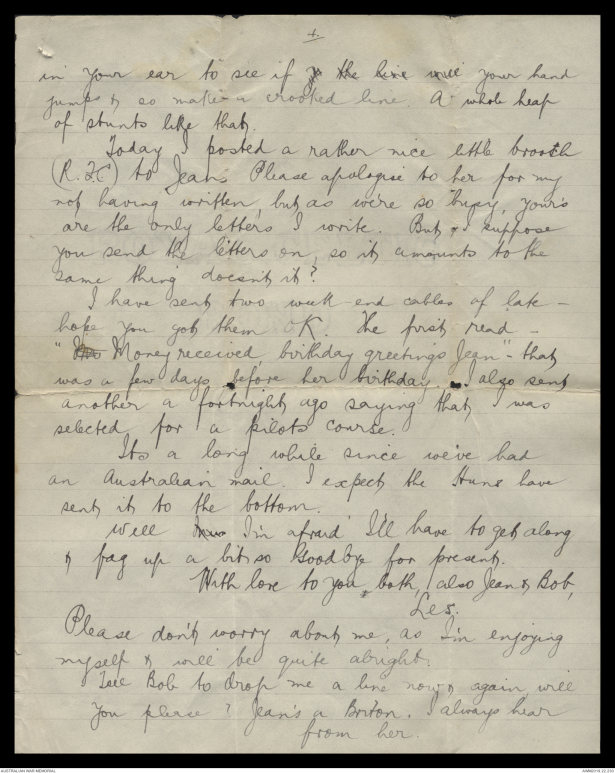 4.
in your ear to see if the line will your hand
jumps & so make a crooked line. A whole heap
of stunts like that.
Today I posted a rather nice little brooch
(R.F.C) to Jean. Please apologise to her for my
not having written, but as we're so busy, yours
are the only letters I write. But I suppose
you send the letters on, so it amounts to the
same thing doesn't it?
I have sent two week-end cables of late -
hope you got them OK. The first read -
" Money received, birthday greetings Jean" - that
was a few days before her birthday. I also sent
another a fortnight ago saying that I was
selected for a pilots course.
Its a long while since we've had
an Australian mail. I expect the Huns have
sent it to the bottom.
Well I'm afraid I'll have to get along
& fag up a bit so Goodbye for present.
With love to you both, also Jean & Bob,
Les.
Please don't worry about me, as I'm enjoying
myself & will be quite alright.
Tell Bob to drop me a line now & again will
you please? Jean's a Briton. I always hear
from her.
AUSTRALIAN WAR MEMORIAL